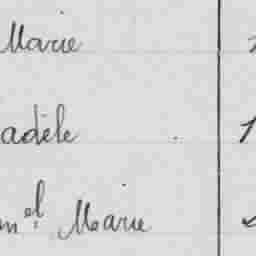 Marie
adèle
el Marie